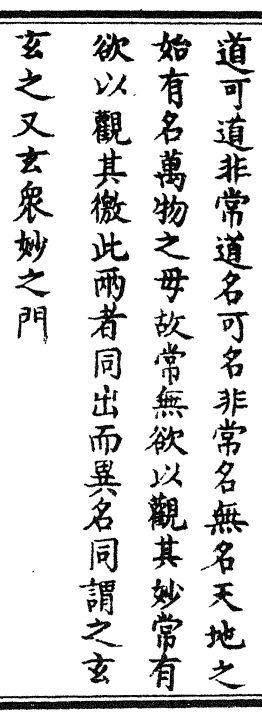 道可道非常道名可名非常名無名天地之
始有名萬物之母故常無欲以觀其妙常有
欲以觀其徼此兩者同出而異名同謂之玄
玄之又玄衆妙之門